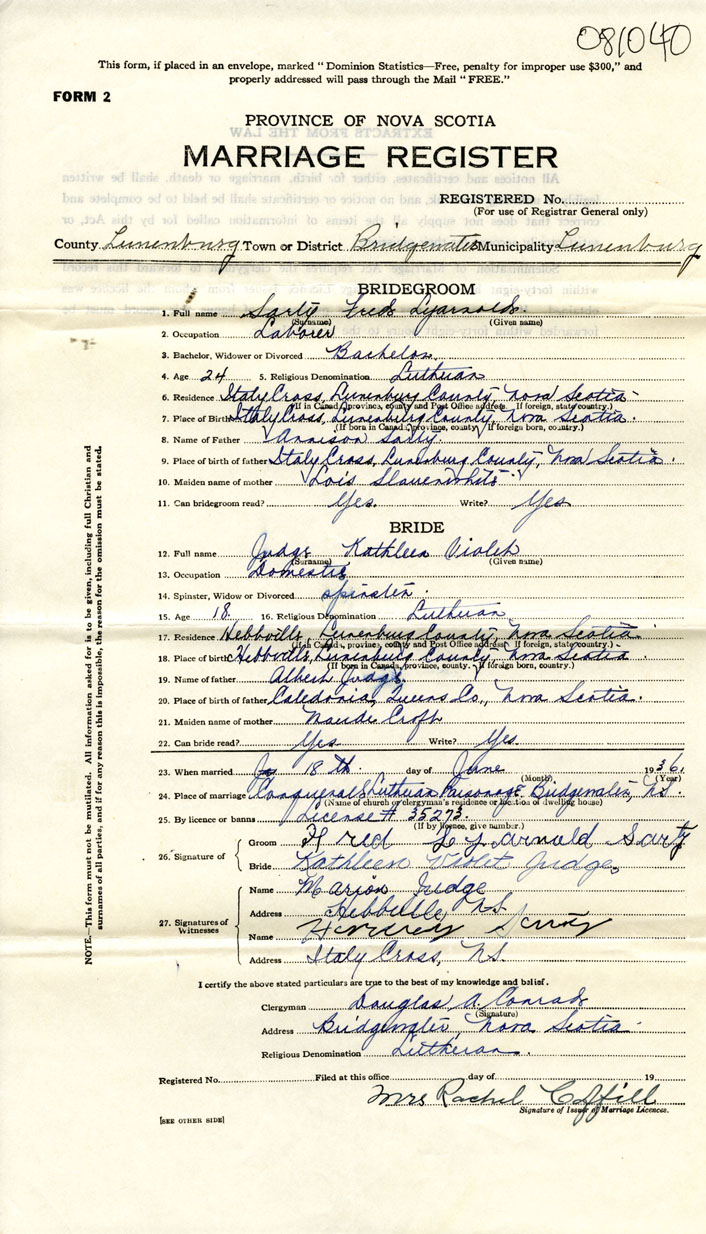 081040
This form, if placed in an envelope, marked "Dominion Statistics—Free, penalty for improper use $300," and
properly addressed will pass through the Mail "FREE."
FORM 2
PROVINCE OF NOVA SCOTIA
MARRIAGE REGISTER
REGISTERED No.
(For use of Registrar General only)
County Lunenburg Town or District Bridgewater Municipality Lunenburg
BRIDEGROOM
1. Full name Sarty Fred Lyarnold.
(Surname) (Given name)
2. Occupation Laborer
3. Bachelor, Widower or Divorced Bachelor.
4. Age 24 5. Religious Denomination Lutheran
6. Residence Italy Cross, Lunenburg County, Nova Scotia.
(If in Canada, province, county and Post Office address. If foreign, state country.)
7. Place of Birth Italy Cross, Lunenburg County, Nova Scotia.
(If born in Canada, province, county. If foreign born, country.)
8. Name of Father Annison Sarty.
9. Place of birth of father Italy Cross, Lunenburg County, Nova Scotia.
10. Maiden name of mother Lois Slauenwhite.
11. Can bridegroom read? Yes. Write? Yes
BRIDE
12. Full name Judge Kathleen Violet
(Surname) (Given name)
13. Occupation Domestic
14. Spinster, Widow or Divorced spinster.
15. Age 18. 16. Religious Denomination Lutheran
17. Residence Hebbville, Lunenburg County, Nova Scotia.
(If in Canada, province, county and Post Office address. If foreign, state country.)
18. Place of birth Hebbville, Lunenburg County, Nova Scotia.
(If born in Canada, province, county. If foreign born, country.)
19. Name of father Albert Judge.
20. Place of birth of father Caledonia, Queens Co., Nova Scotia.
21. Maiden name of mother Maude Croft
22. Can bride read? Yes Write? Yes.
23. When married 18th day of June 1936.
(Month) (Year)
24. Place of marriage Lutheran Parsonage Bridgewater, N.S.
(Name of church or clergyman's residence or location of dwelling house)
25. By licence or banns License # 35273.
(If by licence, give number.)
26. Signature of
Groom Fred Lyarnold Sarty
Bride Kathleen Violet Judge
27. Signatures of Witnesses
Name Marion Judge
Address Hebbville, N.S
Name Sarty
Address Italy Cross, N.S.
I certify the above stated particulars are true to the best of my knowledge and belief.
Clergyman Douglas A. Conrad
(Signature)
Address Bridgewater, Nova Scotia.
Religious Denomination Lutheran.
Registered No. Filed at this office day of 19
Mrs Rachel Coffill
Signature of Issuer of Marriage Licences.
[SEE OTHER SIDE]
NOTE.—This form must not be mutilated. All information asked for is to be given, including full Christian and
surnames of all parties, and if for any reason this is impossible, the reason for the omission must be stated.